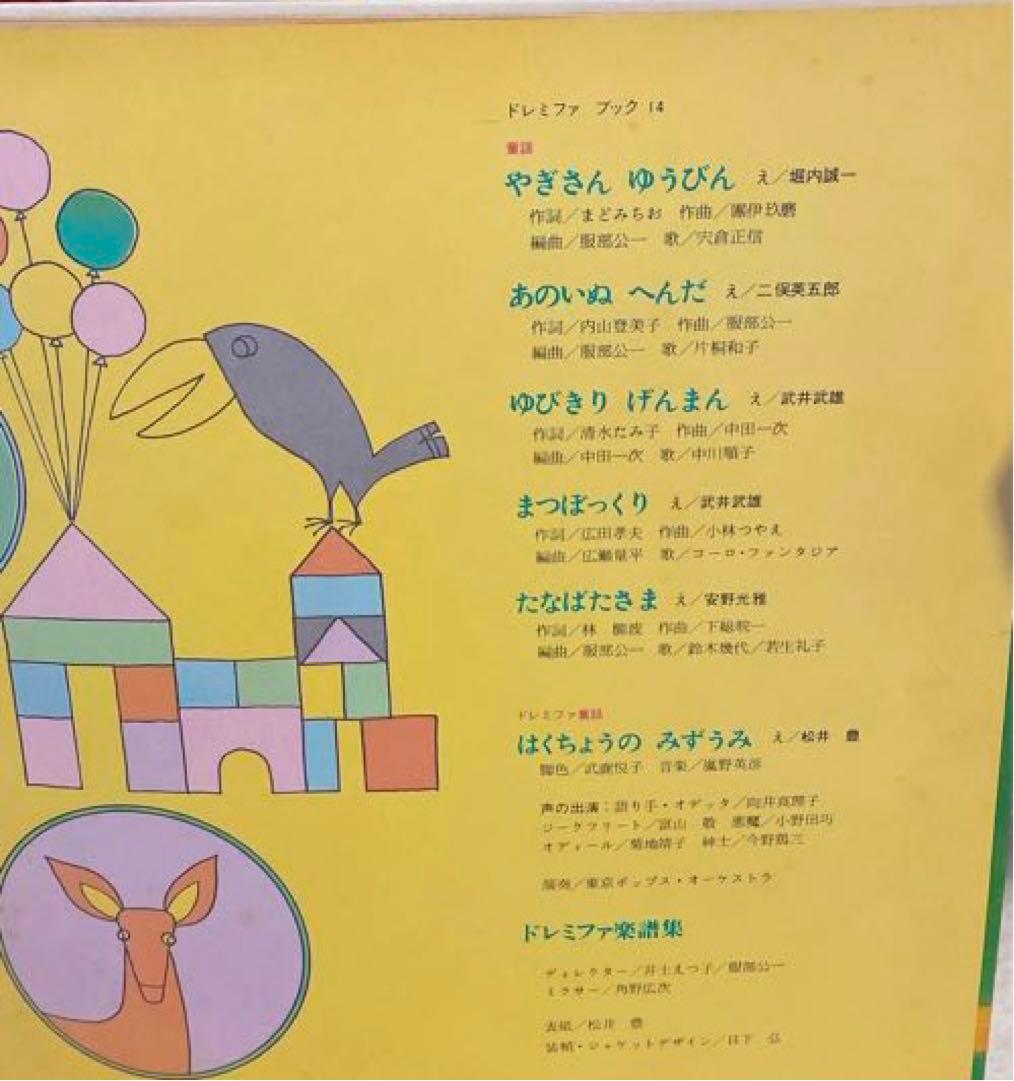 ドレミファ ブック 14
童謡
やぎさん ゆうびん え／堀内誠一
作詞／まどみちお 作曲／團伊玖磨
編曲／服部公一 歌／宍倉正信
あのいぬ へんだ え／二俣英五郎
作詞／内山登美子 作曲／服部公一
編曲／服部公一 歌／片桐和子
ゆびきり げんまん え／武井武雄
作詞／清水たみ子 作曲／中田一次
編曲／中田一次 歌／中川順子
まつぼっくり え／武井武雄
作詞／広田孝夫 作曲／小林つやえ
編曲／広瀬量平 歌／コーロ・ファンタジア
たなばたさま え／安野光雅
作詞／林 柳波 作曲／下総皖一
編曲／服部公一 歌／鈴木幾代／若生礼子
ドレミファ童話
はくちょうの みずうみ え／松井 豊
脚色／武鹿悦子 音楽／嵐野英彦
声の出演：語り手・オデッタ／向井真理子
ジークフリート／富山 敬 悪魔／小野田巧
オディール／菊地靖子 紳士／今野鶏三
演奏／東京ポップス・オーケストラ
ドレミファ楽譜集
ディレクター／井土えつ子／服部公一
ミクサー／角野広次
表紙／松井 豊
装幀・ジャケットデザイン／日下 弘